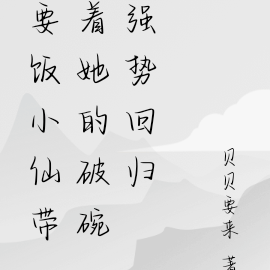 要饭小仙带
着她的破碗
强势回归
贝贝要来 著